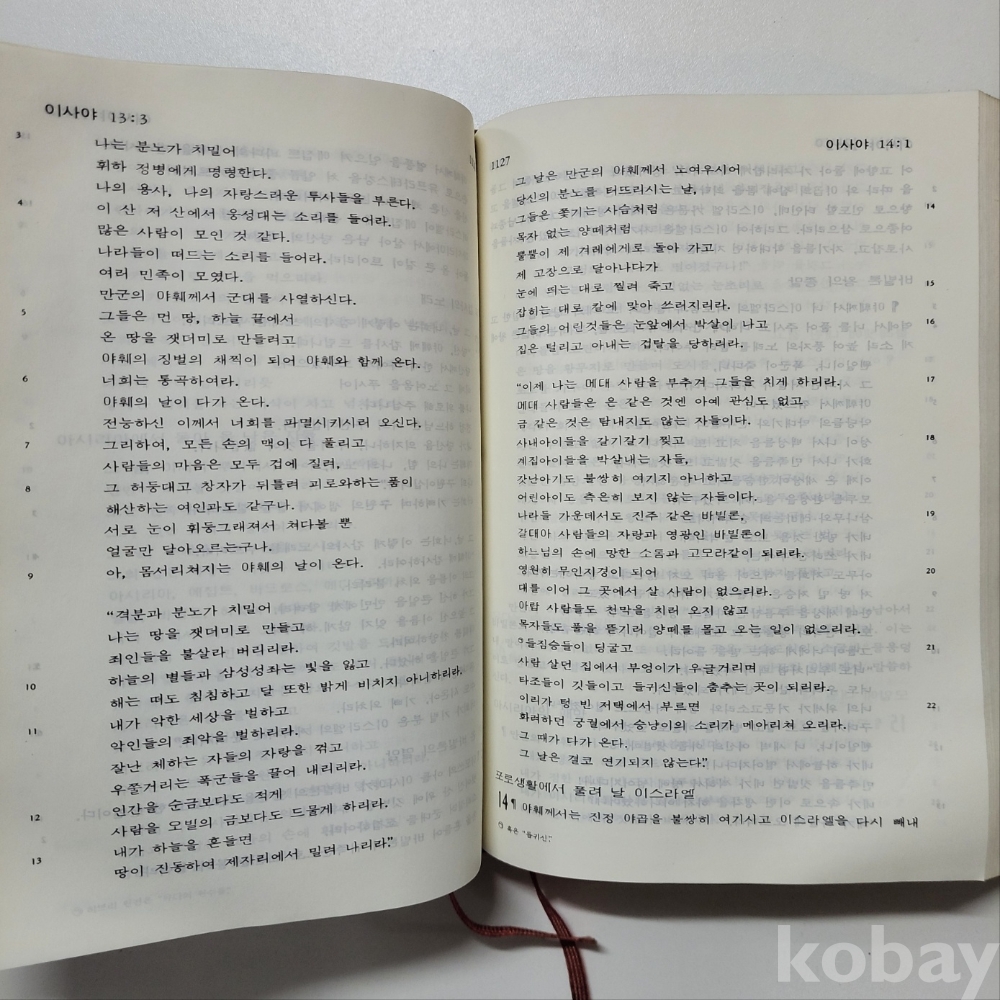 이사야 13:3
3 나는 분노가 치밀어
휘하 정병에게 명령한다.
나의 용사, 나의 자랑스러운 투사들을 부른다.
4 이 산 저 산에서 웅성대는 소리를 들어라.
많은 사람이 모인 것 같다.
나라들이 떠드는 소리를 들어라.
여러 민족이 모였다.
만군의 야훼께서 군대를 사열하신다.
5 그들은 먼 땅, 하늘 끝에서
온 땅을 잿더미로 만들려고
야훼의 징벌의 채찍이 되어 야훼와 함께 온다.
6 너희는 통곡하여라.
야훼의 날이 다가 온다.
전능하신 이께서 너희를 파멸시키시러 오신다.
7 그리하여, 모든 손의 맥이 다 풀리고
사람들의 마음은 모두 겁에 질려,
8 그 허둥대고 창자가 뒤틀려 괴로와하는 품이
해산하는 여인과도 같구나.
서로 눈이 휘둥그래져서 쳐다볼 뿐
얼굴만 달아오르는구나.
9 아, 몸서리쳐지는 야훼의 날이 온다.
“격분과 분노가 치밀어
나는 땅을 잿더미로 만들고
죄인들을 불살라 버리리라.
10 하늘의 별들과 삼성성좌는 빛을 잃고
해는 떠도 침침하고 달 또한 밝게 비치지 아니하리라.
11 내가 악한 세상을 벌하고
악인들의 죄악을 벌하리라.
잘난 체하는 자들의 자랑을 꺾고
우쭐거리는 폭군들을 끌어 내리리라.
12 인간을 순금보다도 적게
사람을 오빌의 금보다도 드물게 하리라.
13 내가 하늘을 흔들면
땅이 진동하여 제자리에서 밀려 나리라”
1127
이사야 14:1
그 날은 만군의 야훼께서 노여우시어
당신의 분노를 터뜨리시는 날,
그들은 쫓기는 사슴처럼 14
목자 없는 양떼처럼
뿔뿔이 제 겨레에게로 돌아 가고
제 고장으로 달아나다가
눈에 띄는 대로 찔려 죽고 15
잡히는 대로 칼에 맞아 쓰러지리라.
그들의 어린것들은 눈앞에서 박살이 나고 16
집은 털리고 아내는 겁탈을 당하리라.
“이제 나는 메대 사람을 부추겨 그들을 치게 하리라. 17
메대 사람들은 은 같은 것엔 아예 관심도 없고,
금 같은 것은 탐내지도 않는 자들이다.
사내아이들을 갈기갈기 찢고 18
계집아이들을 박살내는 자들,
갓난아기도 불쌍히 여기지 아니하고
어린아이도 측은히 보지 않는 자들이다.
나라들 가운데서도 진주 같은 바빌론, 19
갈대아 사람들의 자랑과 영광인 바빌론이
하느님의 손에 망한 소돔과 고모라같이 되리라.
영원히 무인지경이 되어 20
대를 이어 그 곳에서 살 사람이 없으리라.
아랍 사람들도 천막을 치러 오지 않고
목자들도 풀을 뜯기러 양떼를 몰고 오는 일이 없으리라.
들짐승들이 딩굴고 21
사람 살던 집에서 부엉이가 우글거리며
타조들이 깃들이고 들귀신들이 춤추는 곳이 되리라.
이리가 텅 빈 저택에서 부르면 22
화려하던 궁궐에서 승냥이의 소리가 메아리쳐 오리라.
그 때가 다가 온다.
그 날은 결코 연기되지 않는다.”
포로생활에서 풀려 날 이스라엘
14 ¶ 야훼께서는 진정 야곱을 불쌍히 여기시고 이스라엘을 다시 빼내
㉠ 혹은 “들귀신.”
kobay